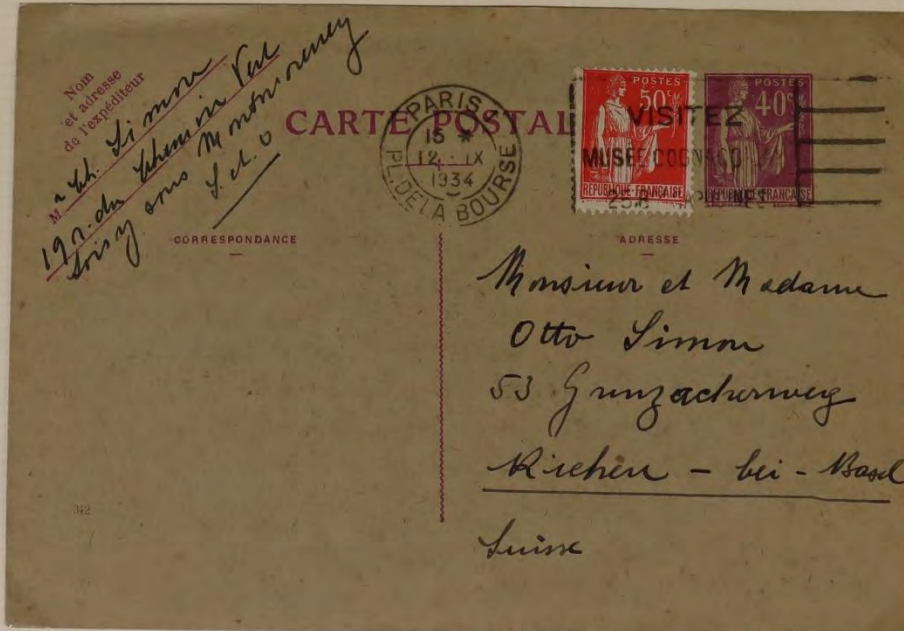 Nom
et adresse
de l'expéditeur
M r Ch. Simon
19 r. du Chemin Vert
Soisy sous Montmorency
S. et O
CARTE POSTALE
PARIS
15 *
12 - IX
1934
PL. DE LA BOURSE
POSTES
50c
REPUBLIQUE-FRANÇAISE
POSTES
40c
REPUBLIQUE-FRANÇAISE
VISITEZ
MUSEE COGNACQ
CORRESPONDANCE
ADRESSE
Monsieur et Madame
Otto Simon
53 Grenzacherweg
Riehen - bei - Basel
Suisse
342